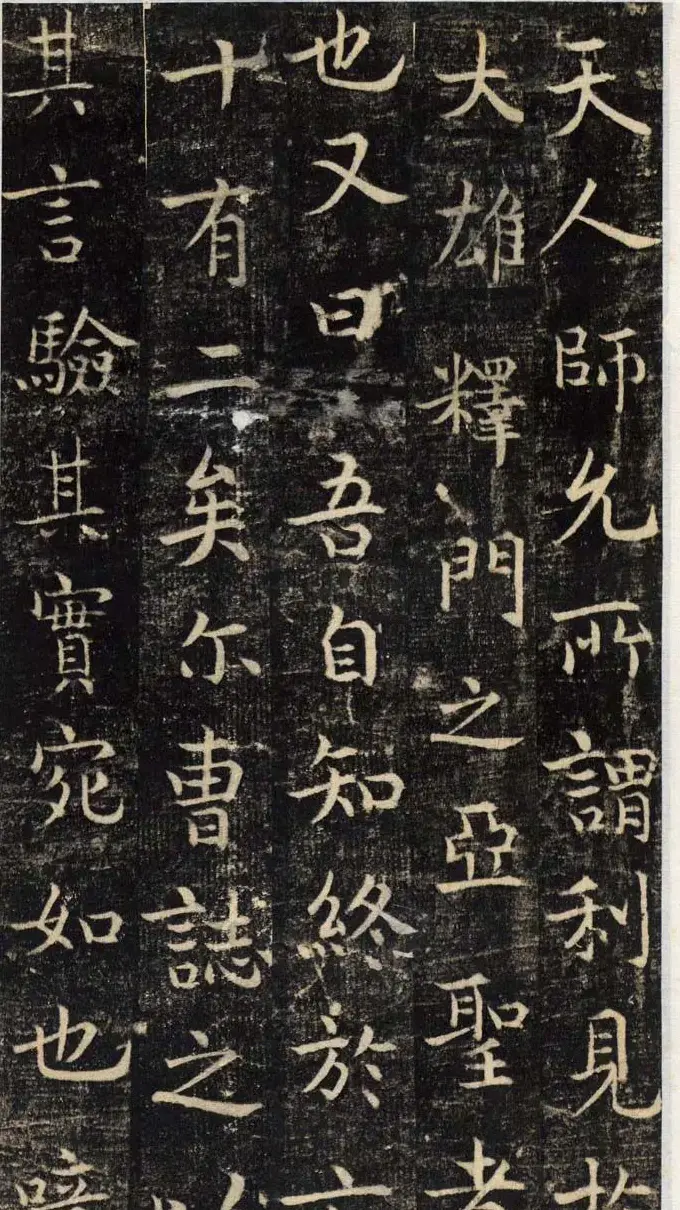 天人師允所謂利見
大雄釋門之亞聖者
也又曰吾自知終於六
十有二矣尔曹誌之
其言驗其實宛如也